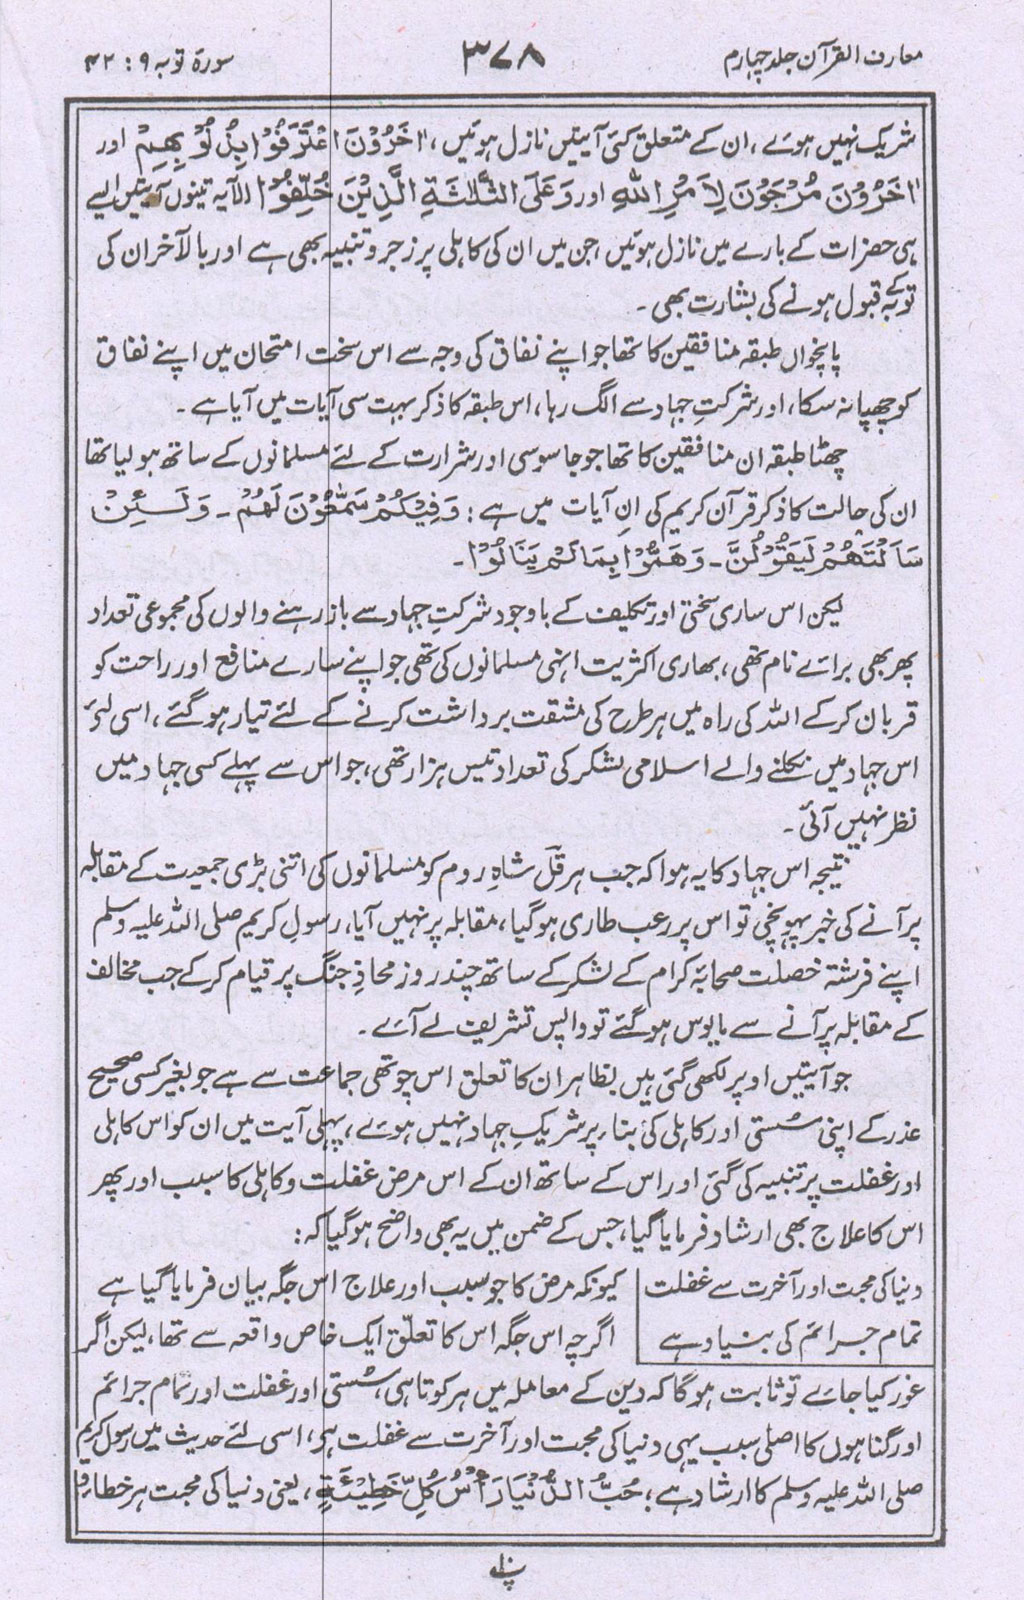 معارف القرآن جلد چہارم
۳۷۸
سورۃ توبہ ۹ : ۴۲
شریک نہیں ہوئے، ان کے متعلق کئی آیتیں نازل ہوئیں، اٰخَرُوْنَ اعْتَرَفُوْا بِذُنُوْبِهِمْ اور
اٰخَرُوْنَ مُرْجَوْنَ لِاَمْرِ اللّٰهِ اور وَعَلَی الثَّلٰثَةِ الَّذِیْنَ خُلِّفُوْا الآیہ تینوں آیتیں ایسے
ہی حضرات کے بارے میں نازل ہوئیں جن میں ان کی کاہلی پر زجر و تنبیہ بھی ہے اور بالآخر ان کی
توبہ کے قبول ہونے کی بشارت بھی۔
پانچواں طبقہ منافقین کا تھا جو اپنے نفاق کی وجہ سے اس سخت امتحان میں اپنے نفاق
کو چھپا نہ سکا، اور شرکتِ جہاد سے الگ رہا، اس طبقہ کا ذکر بہت سی آیات میں آیا ہے۔
چھٹا طبقہ ان منافقین کا تھا جو جاسوسی اور شرارت کے لئے مسلمانوں کے ساتھ ہو لیا تھا
ان کی حالت کا ذکر قرآن کریم کی اِن آیات میں ہے : وَفِیْكُمْ سَمّٰعُوْنَ لَهُمْ۔ وَلَئِنْ
سَاَلْتَهُمْ لَیَقُوْلُنَّ۔ وَهَمُّوْا بِمَا لَمْ یَنَالُوْا۔
لیکن اس ساری سختی اور تکلیف کے باوجود شرکتِ جہاد سے باز رہنے والوں کی مجموعی تعداد
پھر بھی برائے نام تھی، بھاری اکثریت انہی مسلمانوں کی تھی جو اپنے سارے منافع اور راحت کو
قربان کر کے اللہ کی راہ میں ہر طرح کی مشقت برداشت کرنے کے لئے تیار ہو گئے، اسی لئے
اس جہاد میں نکلنے والے اسلامی لشکر کی تعداد تیس ہزار تھی، جو اس سے پہلے کسی جہاد میں
نظر نہیں آئی۔
نتیجہ اس جہاد کا یہ ہوا کہ جب ہرقل شاہِ روم کو مسلمانوں کی اتنی بڑی جمعیت کے مقابلہ
پر آنے کی خبر پہونچی تو اس پر رعب طاری ہو گیا، مقابلہ پر نہیں آیا، رسول کریم صلی اللہ علیہ وسلم
اپنے فرشتہ خصلت صحابۂ کرام کے لشکر کے ساتھ چند روز محاذِ جنگ پر قیام کر کے جب مخالف
کے مقابلہ پر آنے سے مایوس ہو گئے تو واپس تشریف لے آئے۔
جو آیتیں اوپر لکھی گئی ہیں بظاہر ان کا تعلق اس چوتھی جماعت سے ہے جو بغیر کسی صحیح
عذر کے اپنی سُستی اور کاہلی کی بناء پر شریکِ جہاد نہیں ہوئے، پہلی آیت میں ان کو اس کاہلی
اور غفلت پر تنبیہ کی گئی اور اس کے ساتھ ان کے اس مرض غفلت و کاہلی کا سبب اور پھر
اس کا علاج بھی ارشاد فرمایا گیا، جس کے ضمن میں یہ بھی واضح ہو گیا کہ :
دنیا کی محبت اور آخرت سے غفلت
تمام جرائم کی بنیاد ہے
کیونکہ مرض کا جو سبب اور علاج اس جگہ بیان فرمایا گیا ہے
اگرچہ اس جگہ اس کا تعلّق ایک خاص واقعہ سے تھا، لیکن اگر
غور کیا جائے تو ثابت ہو گا کہ دین کے معاملہ میں ہر کوتاہی، سُستی اور غفلت اور تمام جرائم
اور گناہوں کا اصلی سبب یہی دنیا کی محبت اور آخرت سے غفلت ہے، اسی لئے حدیث میں رسول کریم
صلی اللہ علیہ وسلم کا ارشاد ہے؛ حُبُّ الدُّنْیَا رَاْسُ كُلِّ خَطِیْئَةٍ، یعنی دنیا کی محبت ہر خطاء و